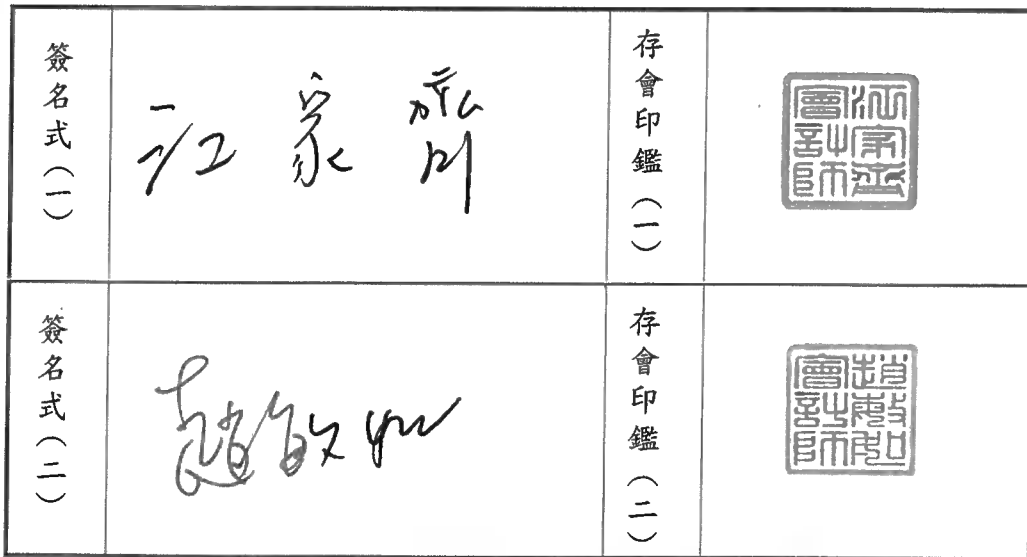 簽名式（一）
江家齊
存會印鑑（一）
江家齊會計師
簽名式（二）
趙敏如
存會印鑑（二）
趙敏如會計師